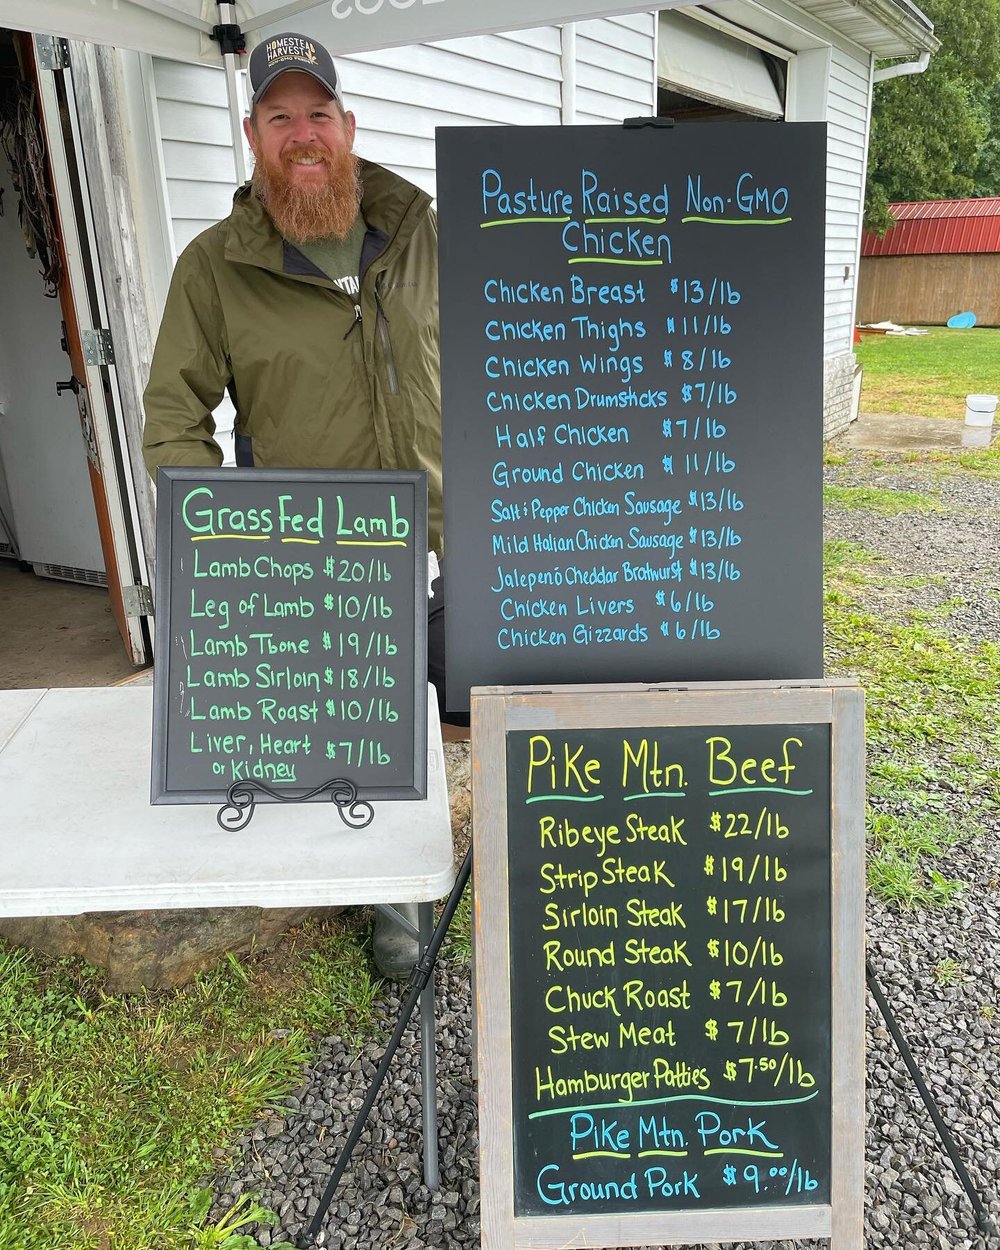 HOMESTEAD
HARVEST
NON-GMO
Grass Fed Lamb
Lamb Chops $20/lb
Leg of Lamb $10/lb
Lamb Tbone $19/lb
Lamb Sirloin $18/lb
Lamb Roast $10/lb
Liver, Heart
or Kidney $7/lb
Pasture Raised Non-GMO
Chicken
Chicken Breast $13/lb
Chicken Thighs $11/lb
Chicken Wings $8/lb
Chicken Drumsticks $7/lb
Half Chicken $7/lb
Ground Chicken $11/lb
Salt & Pepper Chicken Sausage $13/lb
Mild Italian Chicken Sausage $13/lb
Jalepenó Cheddar Bratwurst $13/lb
Chicken Livers $6/lb
Chicken Gizzards $6/lb
Pike Mtn. Beef
Ribeye Steak $22/lb
Strip Steak $19/lb
Sirloin Steak $17/lb
Round Steak $10/lb
Chuck Roast $7/lb
Stew Meat $7/lb
Hamburger Patties $7.50/lb
Pike Mtn. Pork
Ground Pork $9.00/lb